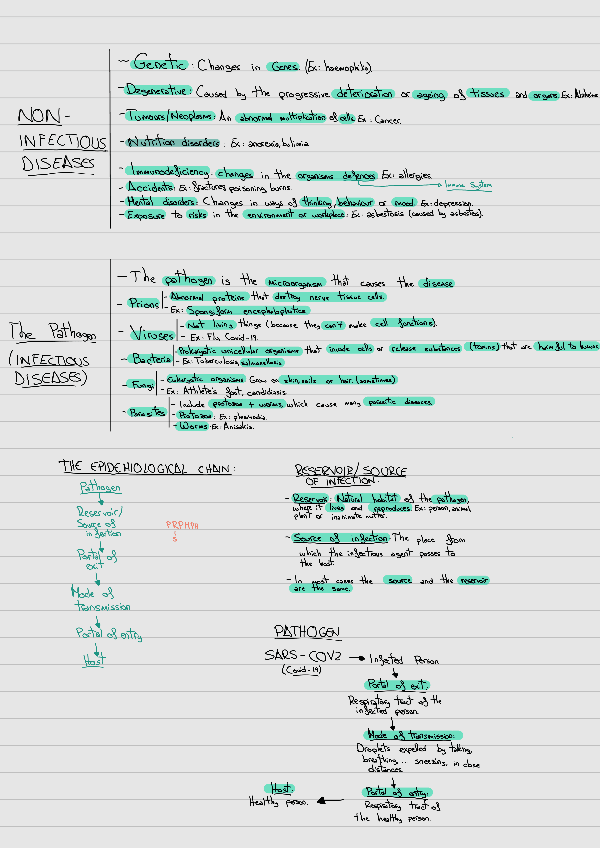 NON-INFECTIOUS DISEASES
- Genetic: Changes in Genes. (Ex: haemophilia).
- Degenerative: Caused by the progressive deterioration or ageing of tissues and organs. Ex: Alzheimer
- Tumours/Neoplasms: An abnormal multiplication of cells. Ex: Cancer.
- Nutrition disorders. Ex: anorexia, bulimia
- Immunodeficiency: changes in the organisms defences. Ex: allergies.
Immune System
- Accidents: Ex: fractures, poisoning, burns.
- Mental disorders: Changes in ways of thinking, behaviour or mood. Ex: depression.
- Exposure to risks in the environment or workplace: Ex: asbestosis (caused by asbestos).
The Pathogen
(INFECTIOUS DISEASES)
- The pathogen is the microorganism that causes the disease
- Prions
- Abnormal proteins that destroy nerve tissue cells.
Ex: Spongiform encephalopathies
- Viruses
- Not living things (because they can't make cell functions).
- Ex: Flu, Covid-19.
- Bacteria
- Prokaryotic unicellular organisms that invade cells or release substances (toxins) that are harmful to humans
- Ex: Tuberculosis, salmonellosis
- Fungi
- Eukaryotic organisms Grow on skin, nails or hair. (sometimes)
- Ex: Athlete's foot, candidiasis.
- Parasites
- Include protozoa + worms, which cause many parasitic diseases.
- Protozoa: Ex:
- Worms: Ex: Anisakis.
THE EPIDEMIOLOGICAL CHAIN:
Pathogen
Reservoir/
Source of
infection
PRPMPH
S
Portal of
exit
Mode of
transmission
Portal of entry
Host
RESERVOIR/SOURCE
OF INFECTION.
- Reservoir: Natural habitat of the pathogen,
where it lives and reproduces. Ex: person, animal
plant or inanimate matter.
- Source of infection: The place from
which the infectious agent passes to
the host.
- In most cases the source and the reservoir
are the same.
PATHOGEN
SARS-COV2 → Infected Person
(Covid-19)
Portal of exit:
Respiratory tract of the
infected person.
Mode of transmission:
Droplets expelled by talking,
breathing... sneezing, in close
distances.
Portal of entry:
Respiratory tract of
the healthy person.
Host:
Healthy person.